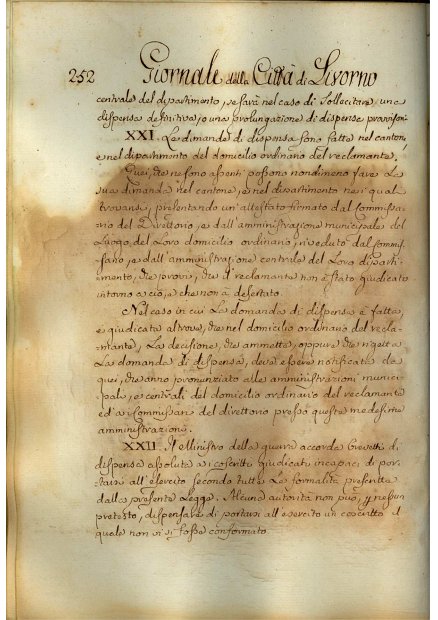 252 Giornale della Città di Livorno
centrale del dipartimento, se sarà nel caso di sollecitare una
dispensa definitiva, o una prolungazione di dispense provvisorie
XXI. Le dimande di dispensa sono fatte nel cantone,
e nel dipartimento del domicilio ordinario del reclamante.
Quei, che ne sono assenti possono nondimeno fare la
sua dimanda nel cantone, e nel dipartimento nei quali
trovansi, presentando un'attestato firmato dal Commissa-
rio del Direttorio, e dall'amministrazione municipale del
Luogo del Loro domicilio ordinario, riveduto dal commis-
sario, e dall'amministrazione centrale del Loro diparti-
mento, che provi, che il reclamante non è stato giudicato
intorno a ciò, e che non à desertato.
Nel caso in cui La domanda di dispensa è fatta,
e giudicata altrove, che nel domicilio ordinario del recla-
mante, La decisione, che ammette, oppure che rigetta
La domanda di dispensa, deve essere notificata da
quei, che anno pronunziato alle amministrazioni munici-
pale, e centrali del domicilio ordinario del reclamante
ed a i Commissari del direttorio presso queste medesime
amministrazioni.
XXII. Il Ministro della guerra accorda brevetti di
dispensa assoluta a i coscritti giudicati incapaci di por-
tarsi all'esercito secondo tutte Le formalità prescritte
dalla presente Legge. Alcuna autorità non può, per nessun
pretesto, dispensare di portarsi all'esercito un coscritto il
quale non vi si fosse conformato.